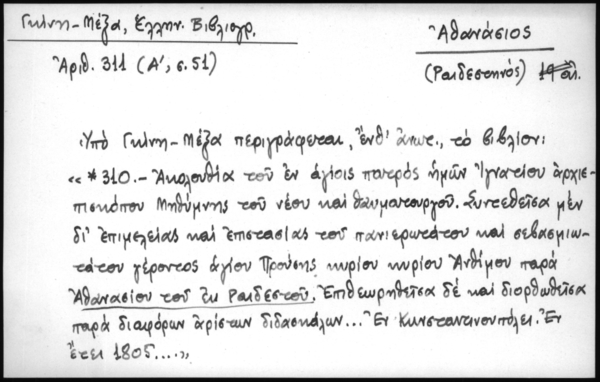 Γκίνη-Μέζα, Ἑλλην. Βιβλιογρ.
Ἀριθ. 311 (Α', σ. 51)
Ἀθανάσιος
(Ραιδεστηνός)
Ὑπὸ Γκίνη-Μέζα περιγράφεται, ἔνθ' ἀνωτ., τὸ βιβλίον:
«*310.- Ἀκολουθία τοῦ ἐν ἁγίοις πατρὸς ἡμῶν Ἰγνατίου ἀρχιε-
πισκόπου Μηθύμνης τοῦ νέου καὶ θαυματουργοῦ. Συντεθεῖσα μὲν
δι' ἐπιμελείας καὶ ἐπιστασίας τοῦ πανιερωτάτου καὶ σεβασμιω-
τάτου γέροντος ἁγίου Προύσης κυρίου κυρίου Ἀνθίμου παρὰ
Ἀθανασίου τοῦ ἐκ Ραιδεστοῦ. Ἐπιθεωρηθεῖσα δὲ καὶ διορθωθεῖσα
παρὰ διαφόρων ἀρίστων διδασκάλων... Ἐν Κωνσταντινουπόλει. Ἐν
ἔτει 1805....»